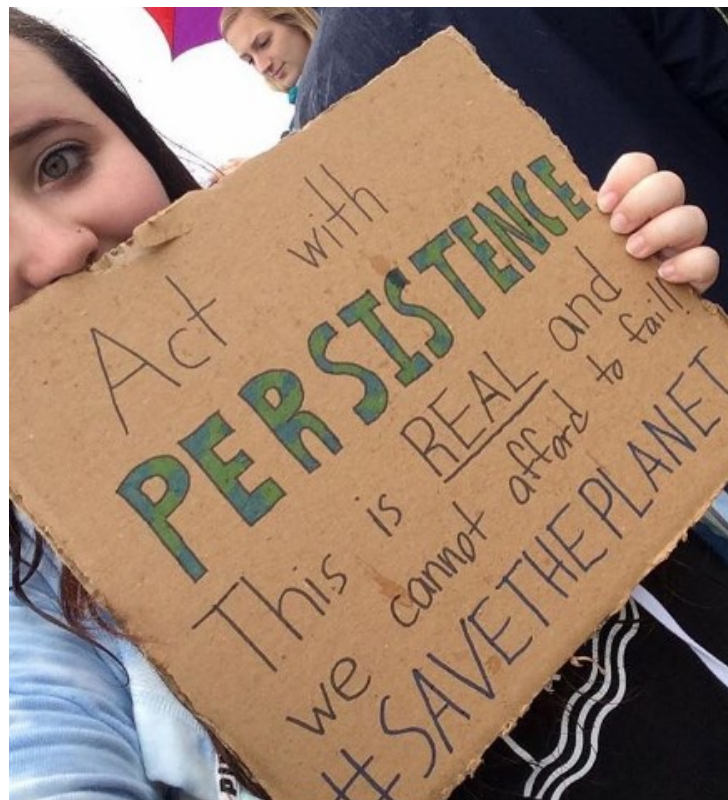 Act with
PERSISTENCE
This is REAL and
we cannot afford to fail!
#SAVETHEPLANET